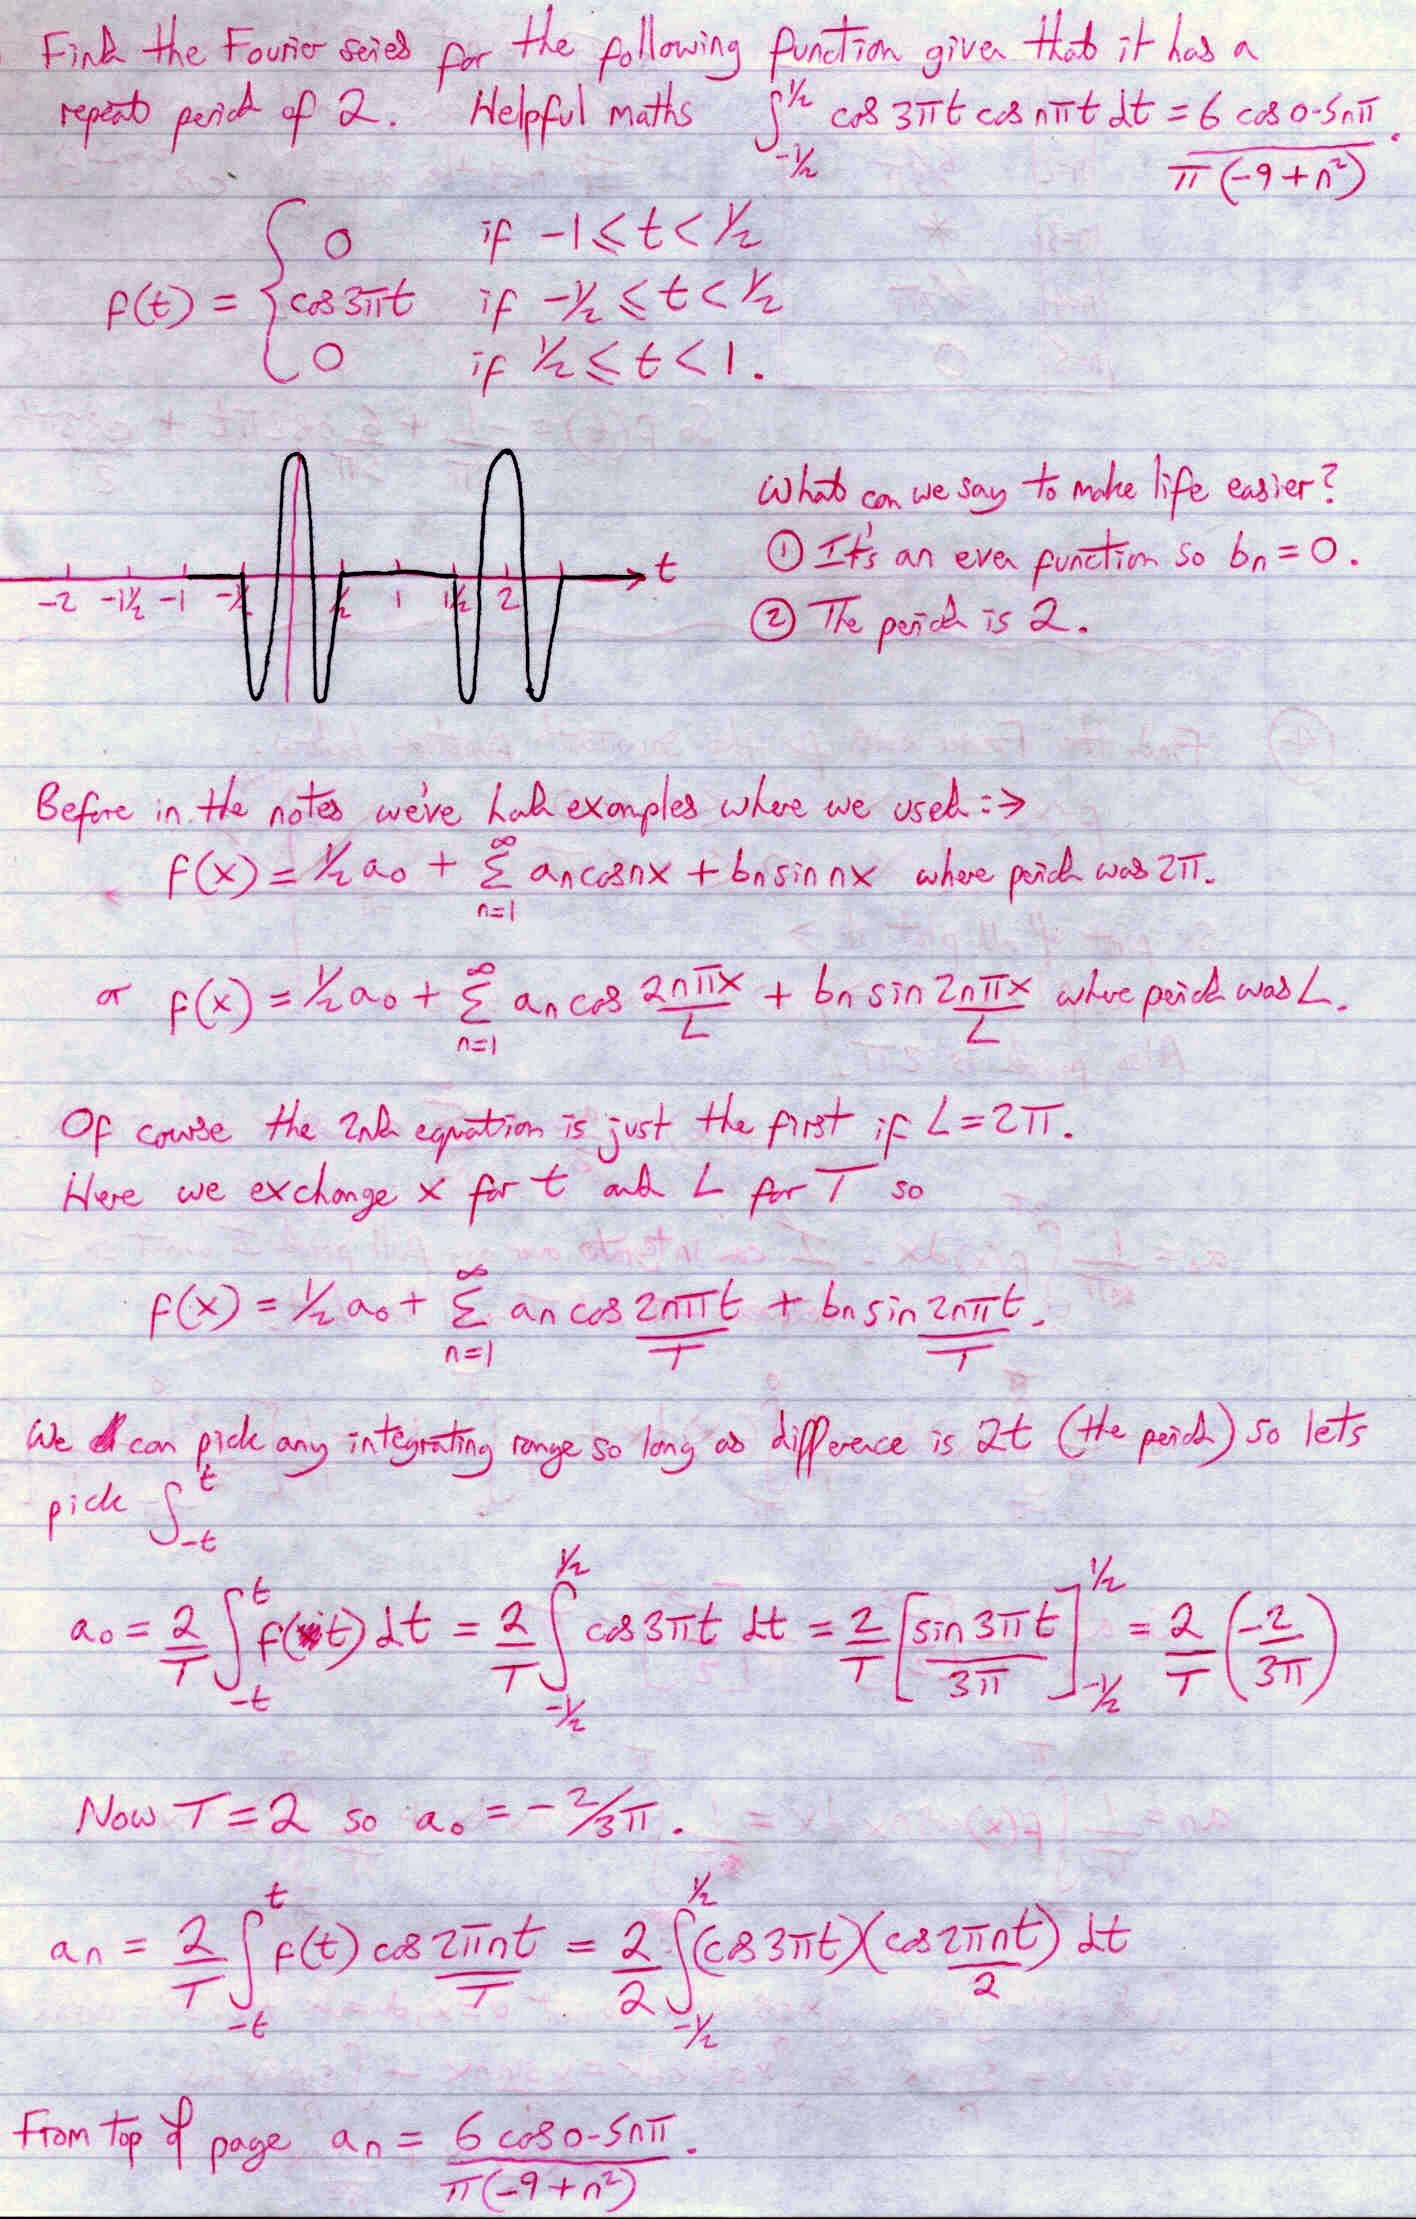 Find the Fourier series for the following function given that it has a
repeat period of 2. Helpful maths ∫_{-½}^{½} cos 3πt cos nπt dt = 6 cos 0.5nπ / π(-9+n²).
f(t) = { 0 if -1 ≤ t < ½
cos 3πt if -½ ≤ t < ½
0 if ½ ≤ t < 1.
What can we say to make life easier?
① It's an even function so bn = 0.
-2 -1½ -1 -½ ½ 1 1½ 2 t
② The period is 2.
Before in the notes we've had examples where we used :⇒
f(x) = ½ a₀ + Σ_{n=1}^{∞} an cos nx + bn sin nx where period was 2π.
or f(x) = ½ a₀ + Σ_{n=1}^{∞} an cos 2nπx/L + bn sin 2nπx/L where period was L.
Of course the 2nd equation is just the first if L = 2π.
Here we exchange x for t and L for T so
f(x) = ½ a₀ + Σ_{n=1}^{∞} an cos 2nπt/T + bn sin 2nπt/T.
We can pick any integrating range so long as difference is 2t (the period) so lets
pick ∫_{-t}^{t}
a₀ = 2/T ∫_{-t}^{t} f(t) dt = 2/T ∫_{-½}^{½} cos 3πt dt = 2/T [sin 3πt / 3π]_{-½}^{½} = 2/T (-2/3π)
Now T = 2 so a₀ = -2/3π.
an = 2/T ∫_{-t}^{t} f(t) cos 2πnt/T = 2/2 ∫_{-½}^{½} (cos 3πt)(cos 2πnt/2) dt
From top of page an = 6 cos 0.5nπ / π(-9+n²).